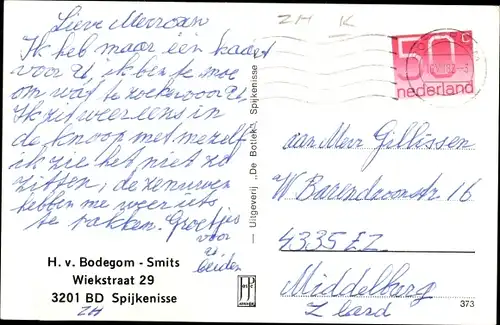 Lieve Mevrouw
Ik heb maar één kaart
voor U, ik ben te moe
om wat te zoeken voor U,
Ik zit weer eens in
de knoop met mezelf
ik zie het niet zo
zitten, de zenuwen
hebben me weer iets
te pakken. Groetjes
voor
U
beiden
H. v. Bodegom - Smits
Wiekstraat 29
3201 BD Spijkenisse
ZH
Uitgeverij „De Botlek", Spijkenisse
ZH K
50 c
nederland
aan Mevr Gillissen
W Barendsvoonstr 16
4335 EZ
Middelburg
Zland
373